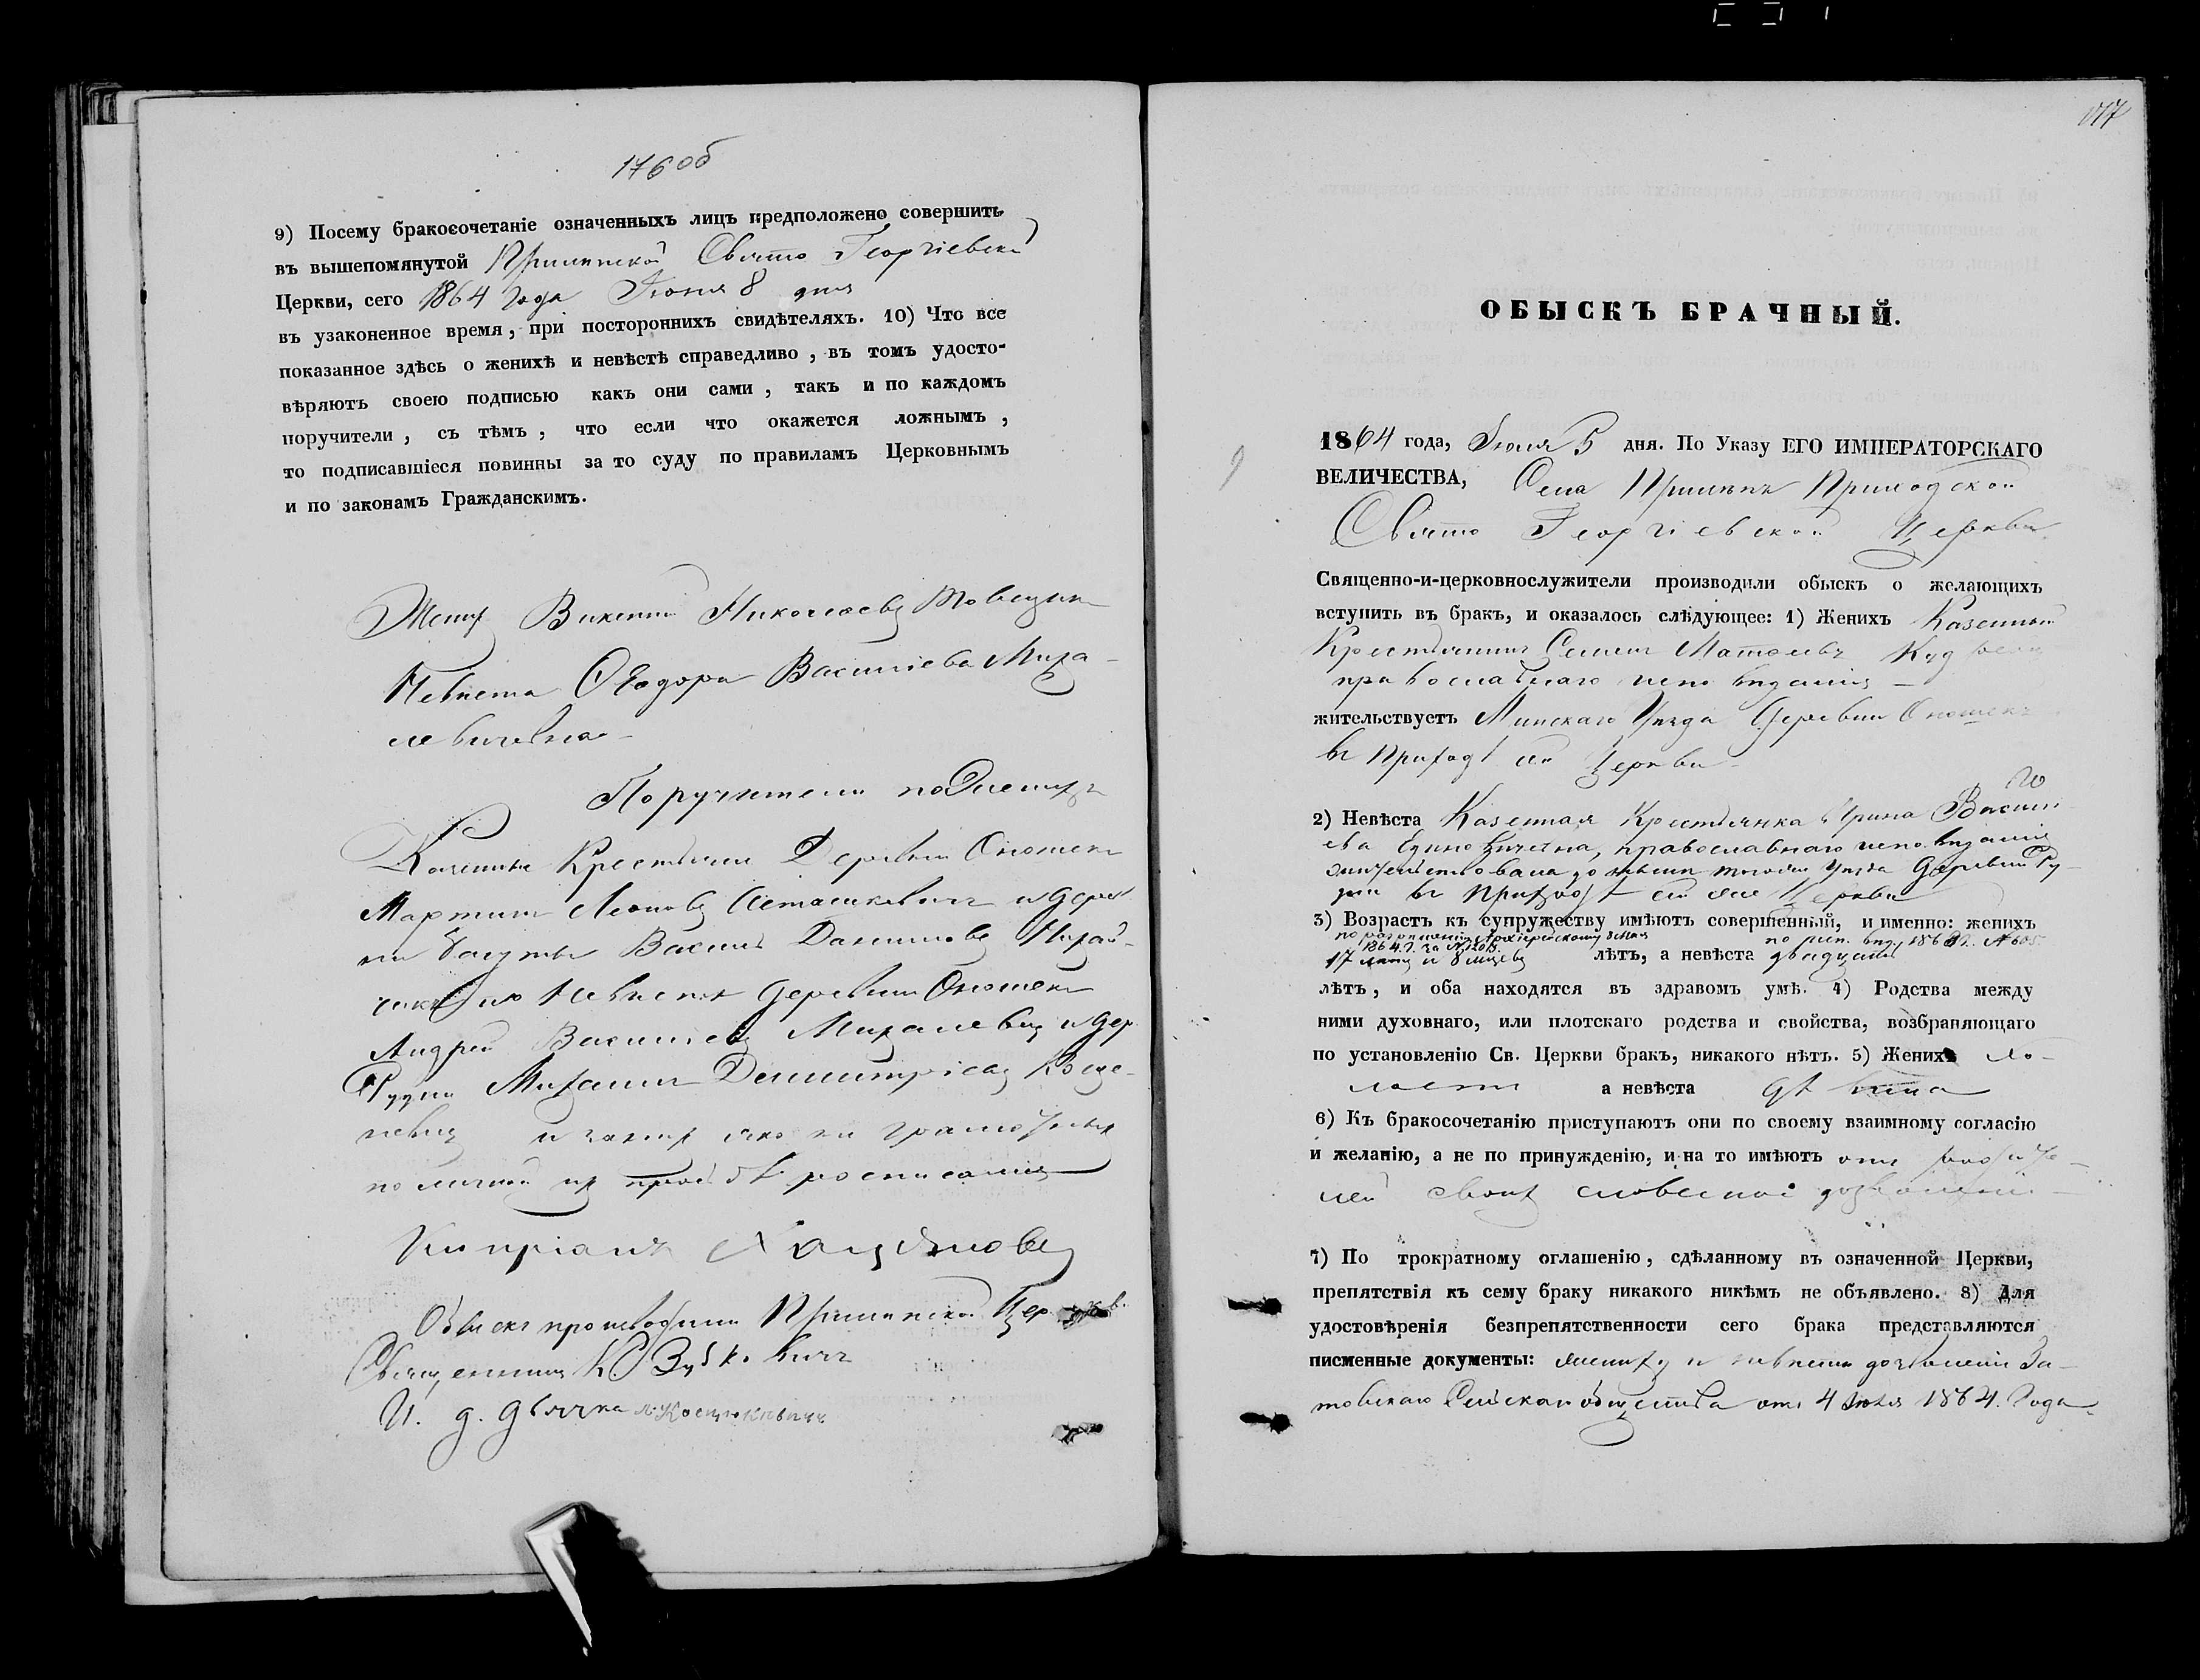 176об
9) Посему бракосочетаніе означенныхъ лицъ предположено совершить
въ вышепомянутой Прилипской Свято Георгіевской
Церкви, сего 1864 года Іюня 8 дня
въ узаконенное время, при постороннихъ свидѣтеляхъ. 10) Что все
показанное здѣсь о женихѣ и невѣстѣ справедливо, въ томъ удосто-
вѣряютъ своею подписью какъ они сами, такъ и по каждомъ
поручители, съ тѣмъ, что если что окажется ложнымъ,
то подписавшіеся повинны за то суду по правиламъ Церковнымъ
и по законамъ Гражданскимъ.
Женихъ Викентій Николаевъ
Невѣста Ѳеодора Васильева Миха-
левичевна
Поручители по Женихѣ
Казенные Крестьяне Деревни Оношекъ
Мартинъ Леоновъ Осташкевичъ и дерев
ни Василій Даниловъ
по Невѣстѣ деревни Оношекъ
Андрей Васильевъ Михалевичъ и дер.
Рудни Михаилъ Димитріевъ
а за нихъ яко не грамотныхъ
по личной ихъ просьбѣ росписался
Кипріанъ
Обыскъ производили Прилипской Цер.
Священникъ К. Зубковичъ
И. д. дьячка Костюкевичъ
177
ОБЫСКЪ БРАЧНЫЙ.
1864 года, Іюля 5 дня. По Указу ЕГО ИМПЕРАТОРСКАГО
ВЕЛИЧЕСТВА, Села Прилѣпъ Приходской
Свято Георгіевской Церкви
Священно-и-церковнослужители производили обыскъ о желающихъ
вступить въ бракъ, и оказалось слѣдующее: 1) Женихъ Казенный
Крестьянинъ Семенъ Матѳеевъ
православнаго исповѣданія
жительствуетъ Минскаго Уѣзда Деревни Оношекъ
въ Приходѣ сей Церкви
2) Невѣста Казенная Крестьянка Ирина Василь
ева православнаго исповѣданія
жительствовала до нынѣ того же Уѣзда Деревни Ру-
дни въ Приходѣ сей же Церкви
3) Возрастъ къ супружеству имѣютъ совершенный, и именно: женихъ
по разрѣшенію Архіерейскому
1864 г. за №
17 лѣтъ и 8 мѣсяц лѣтъ, а невѣста двадцать
лѣтъ, и оба находятся въ здравомъ умѣ. 4) Родства между
ними духовнаго, или плотскаго родства и свойства, возбраняющаго
по установленію Св. Церкви бракъ, никакого нѣтъ. 5) Женихъ хо-
лостъ а невѣста дѣвица
6) Къ бракосочетанію приступаютъ они по своему взаимному согласію
и желанію, а не по принужденію, и на то имѣютъ отъ родите-
лей своихъ словесное дозволеніе
7) По трократному оглашенію, сдѣланному въ означенной Церкви,
препятствія къ сему браку никакого никѣмъ не объявлено. 8) Для
удостовѣренія безпрепятственности сего брака представляются
писменные документы: жениху и невѣстѣ дозволеніе За-
Сельскаго общества отъ 4 Іюля 1864 Года